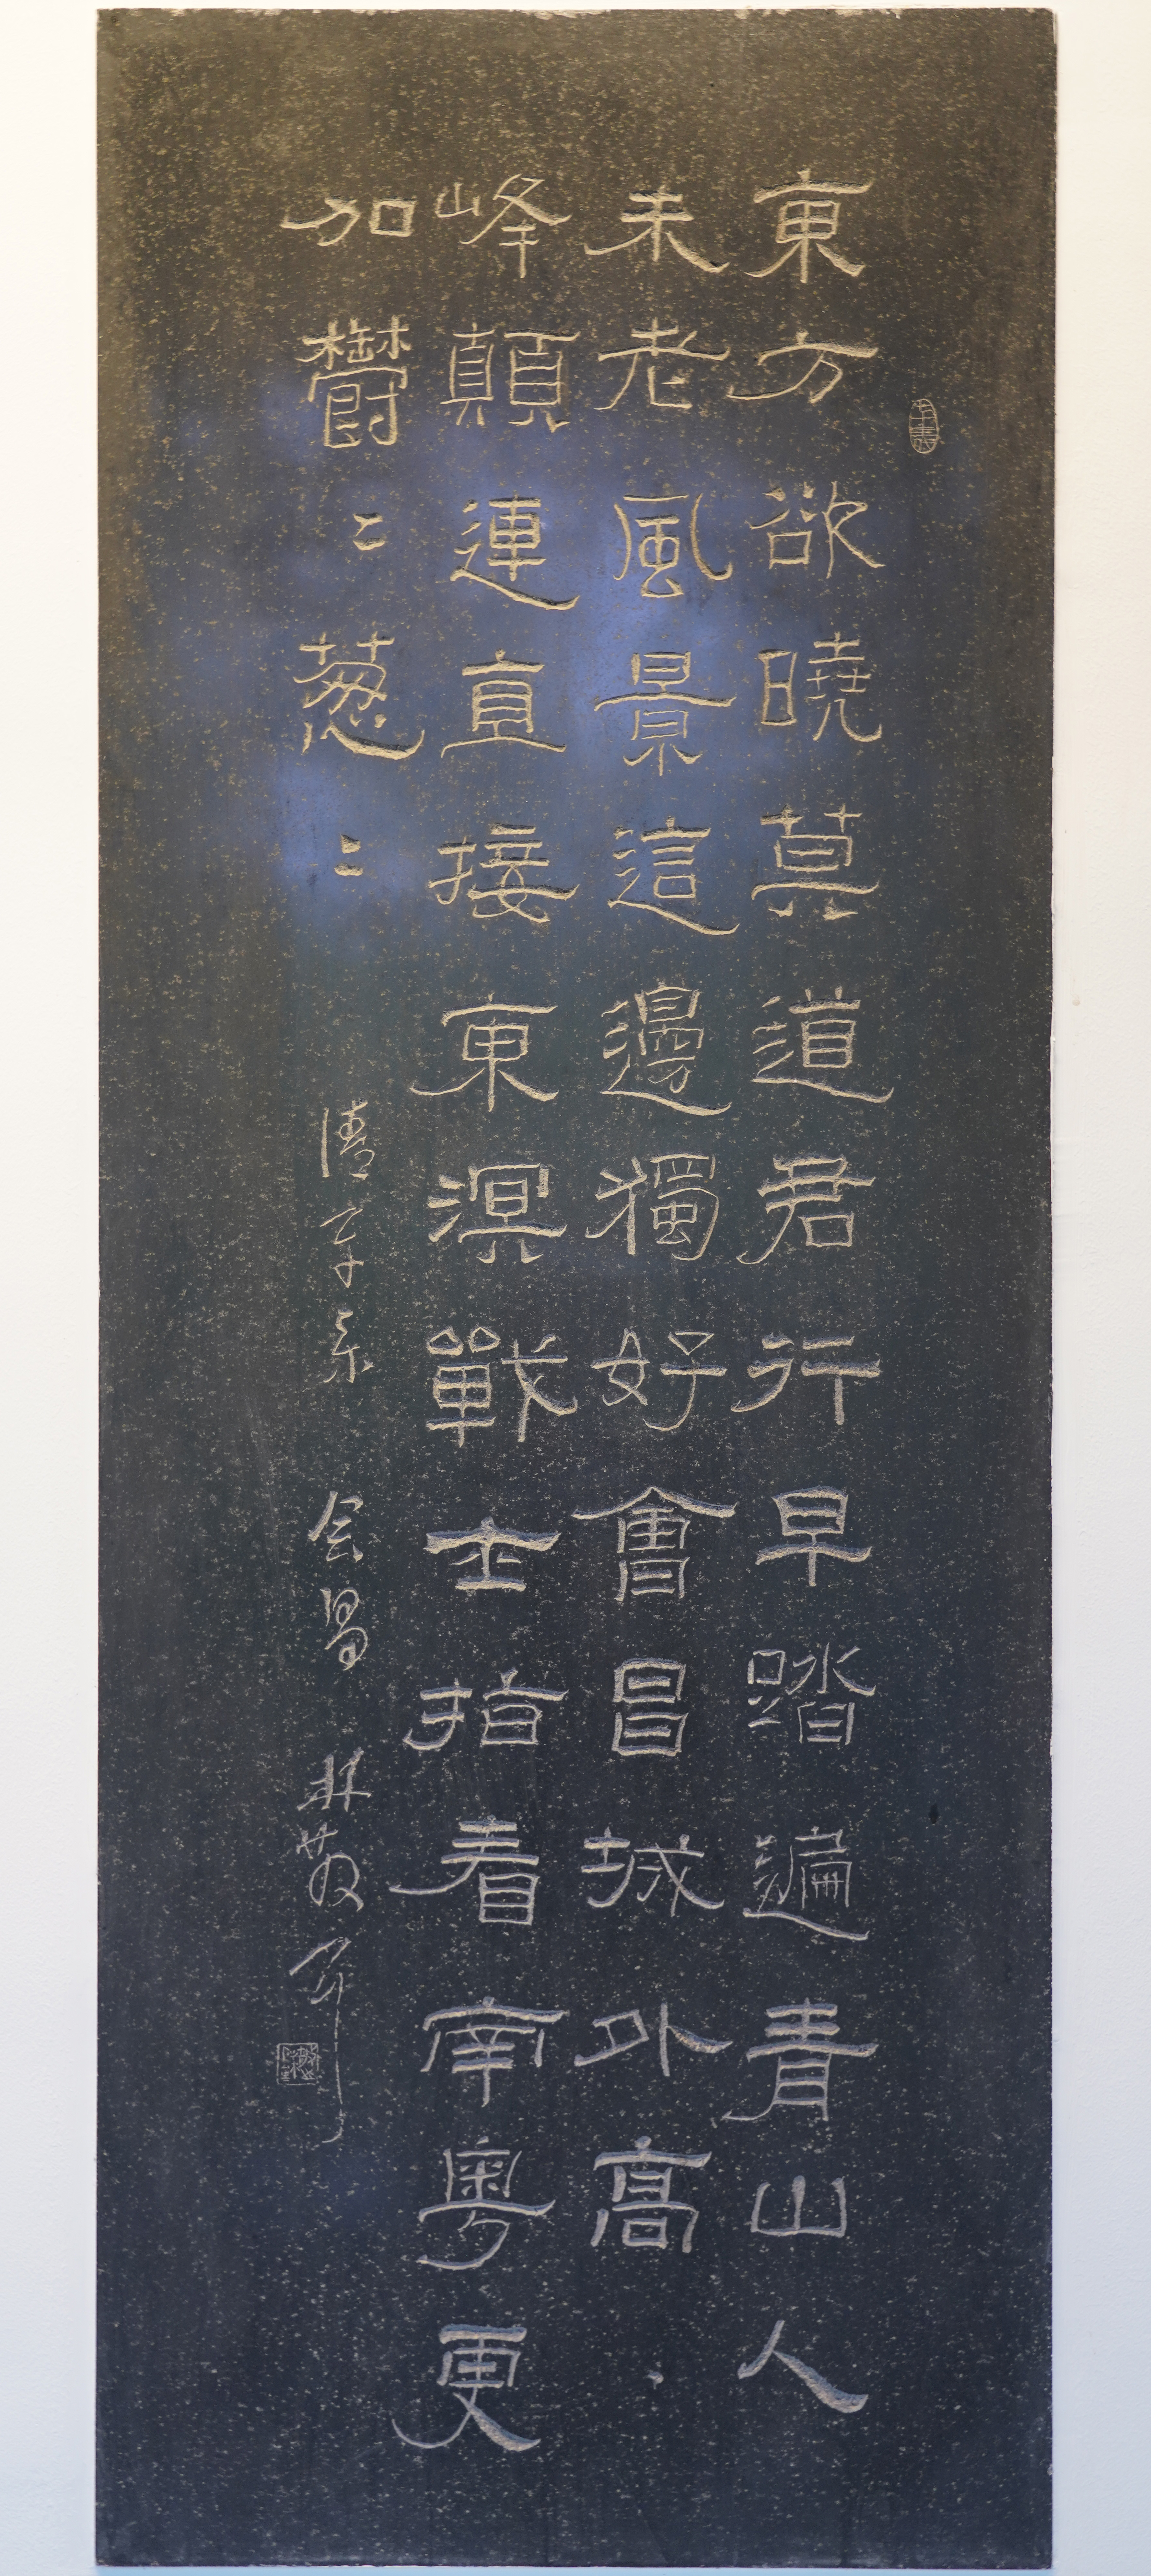 東方欲曉莫道君行早踏遍青山人
未老風景這邊獨好會昌城外高
峰顛連直接東溟戰士指看南粵更
加鬱〻蔥〻
清平乐 会昌